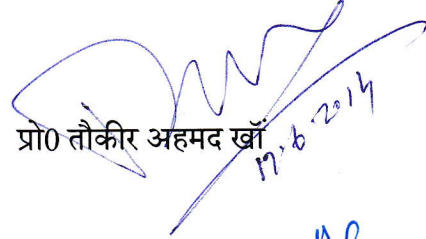 प्रो0 तौकीर अहमद खाँ
17.6.2014